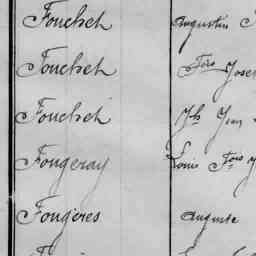 Fouchet Augustin
Fouchet Fois Josep
Fouchet Jh Jean
Fougeray Louis Fois
Fougères Auguste